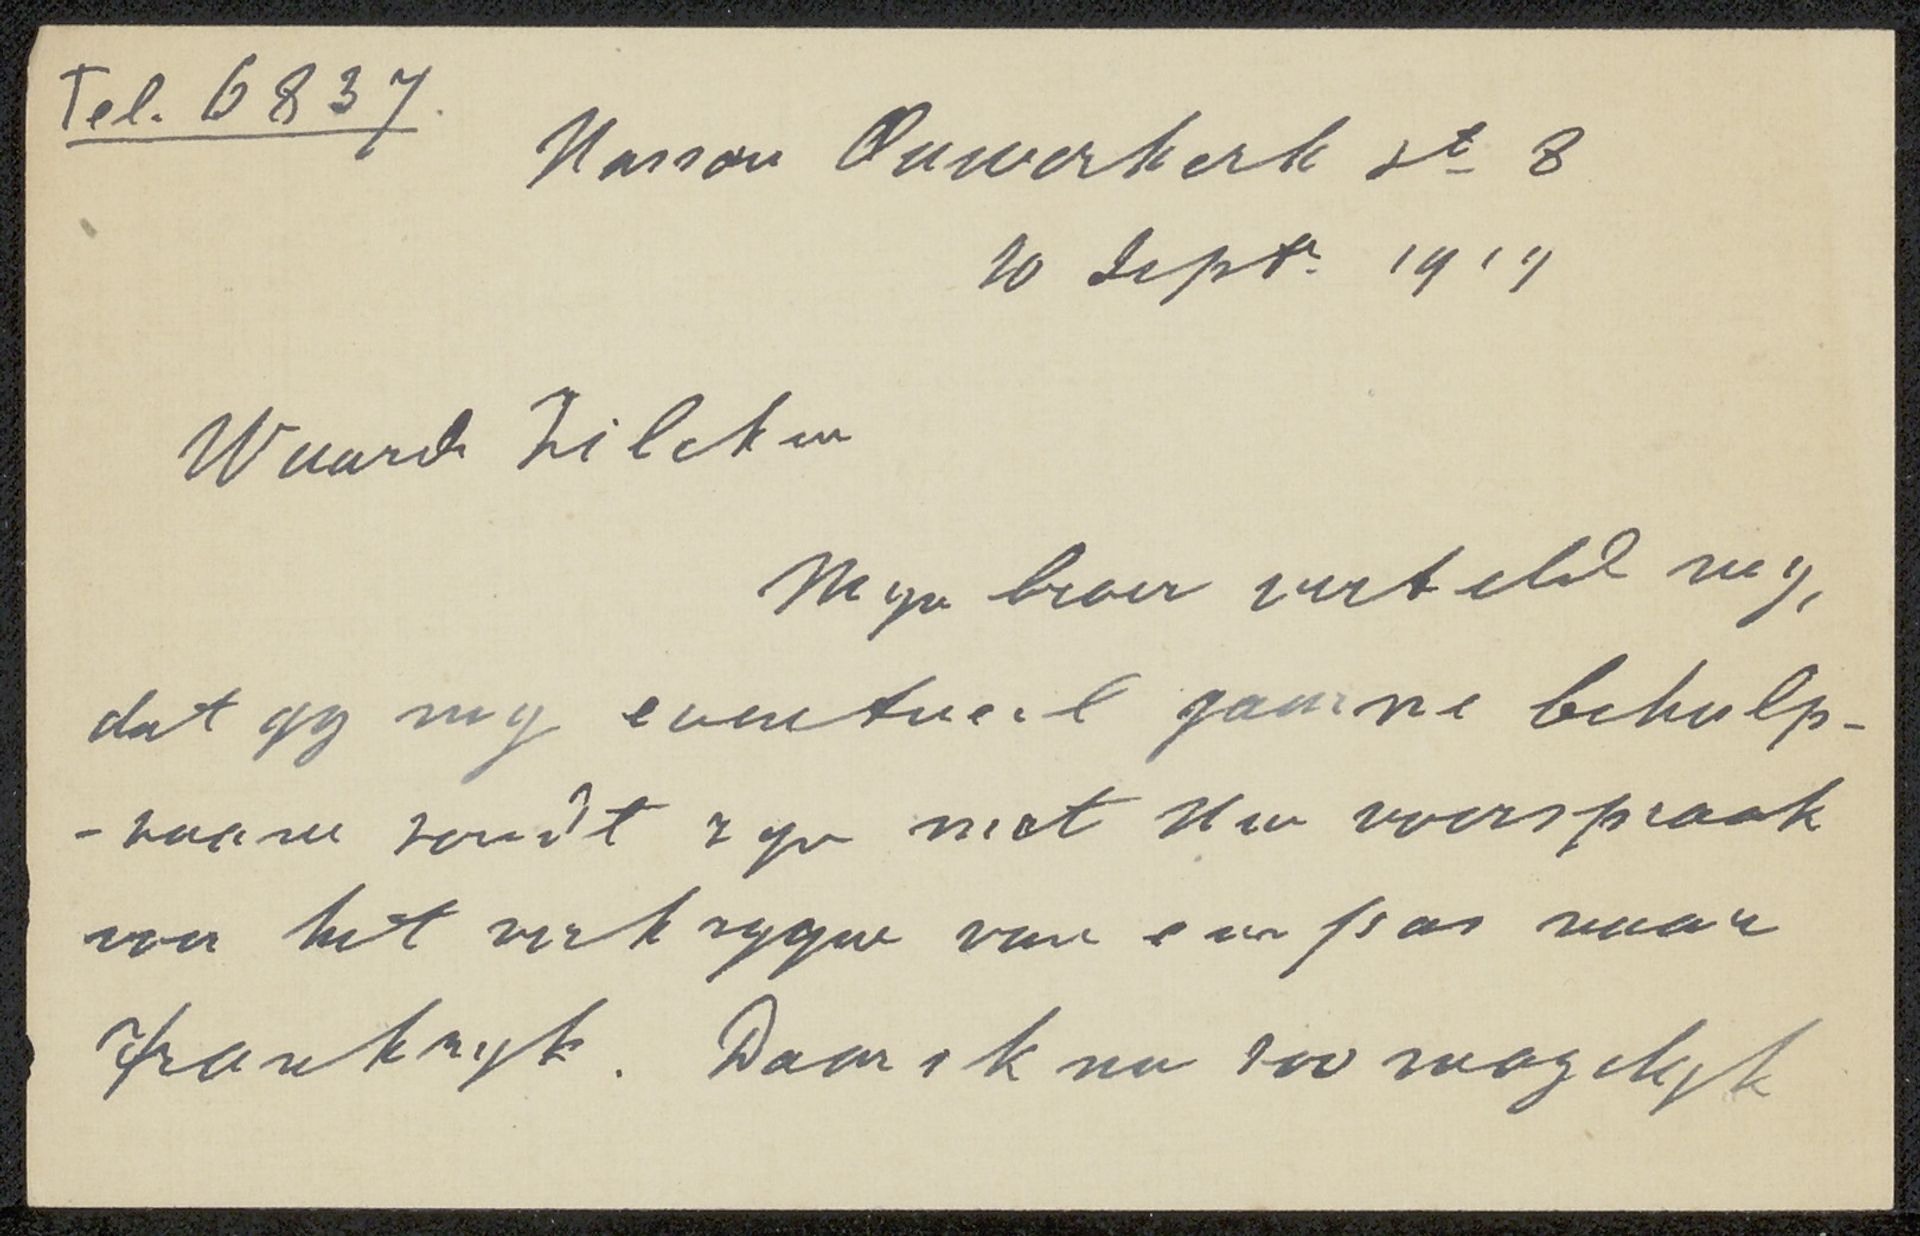 Tel. 6837.
Nassau Ouwerkerk st 8
10 Septr. 1919
Waarde Zilcken
Myn broer verteld my,
dat gy my eventueel gaarne behulp-
-zaam zoudt zyn met Uw voorspraak
voor het verkrygen van een pas naar
Frankryk. Daar ik nu zoo mogelyk